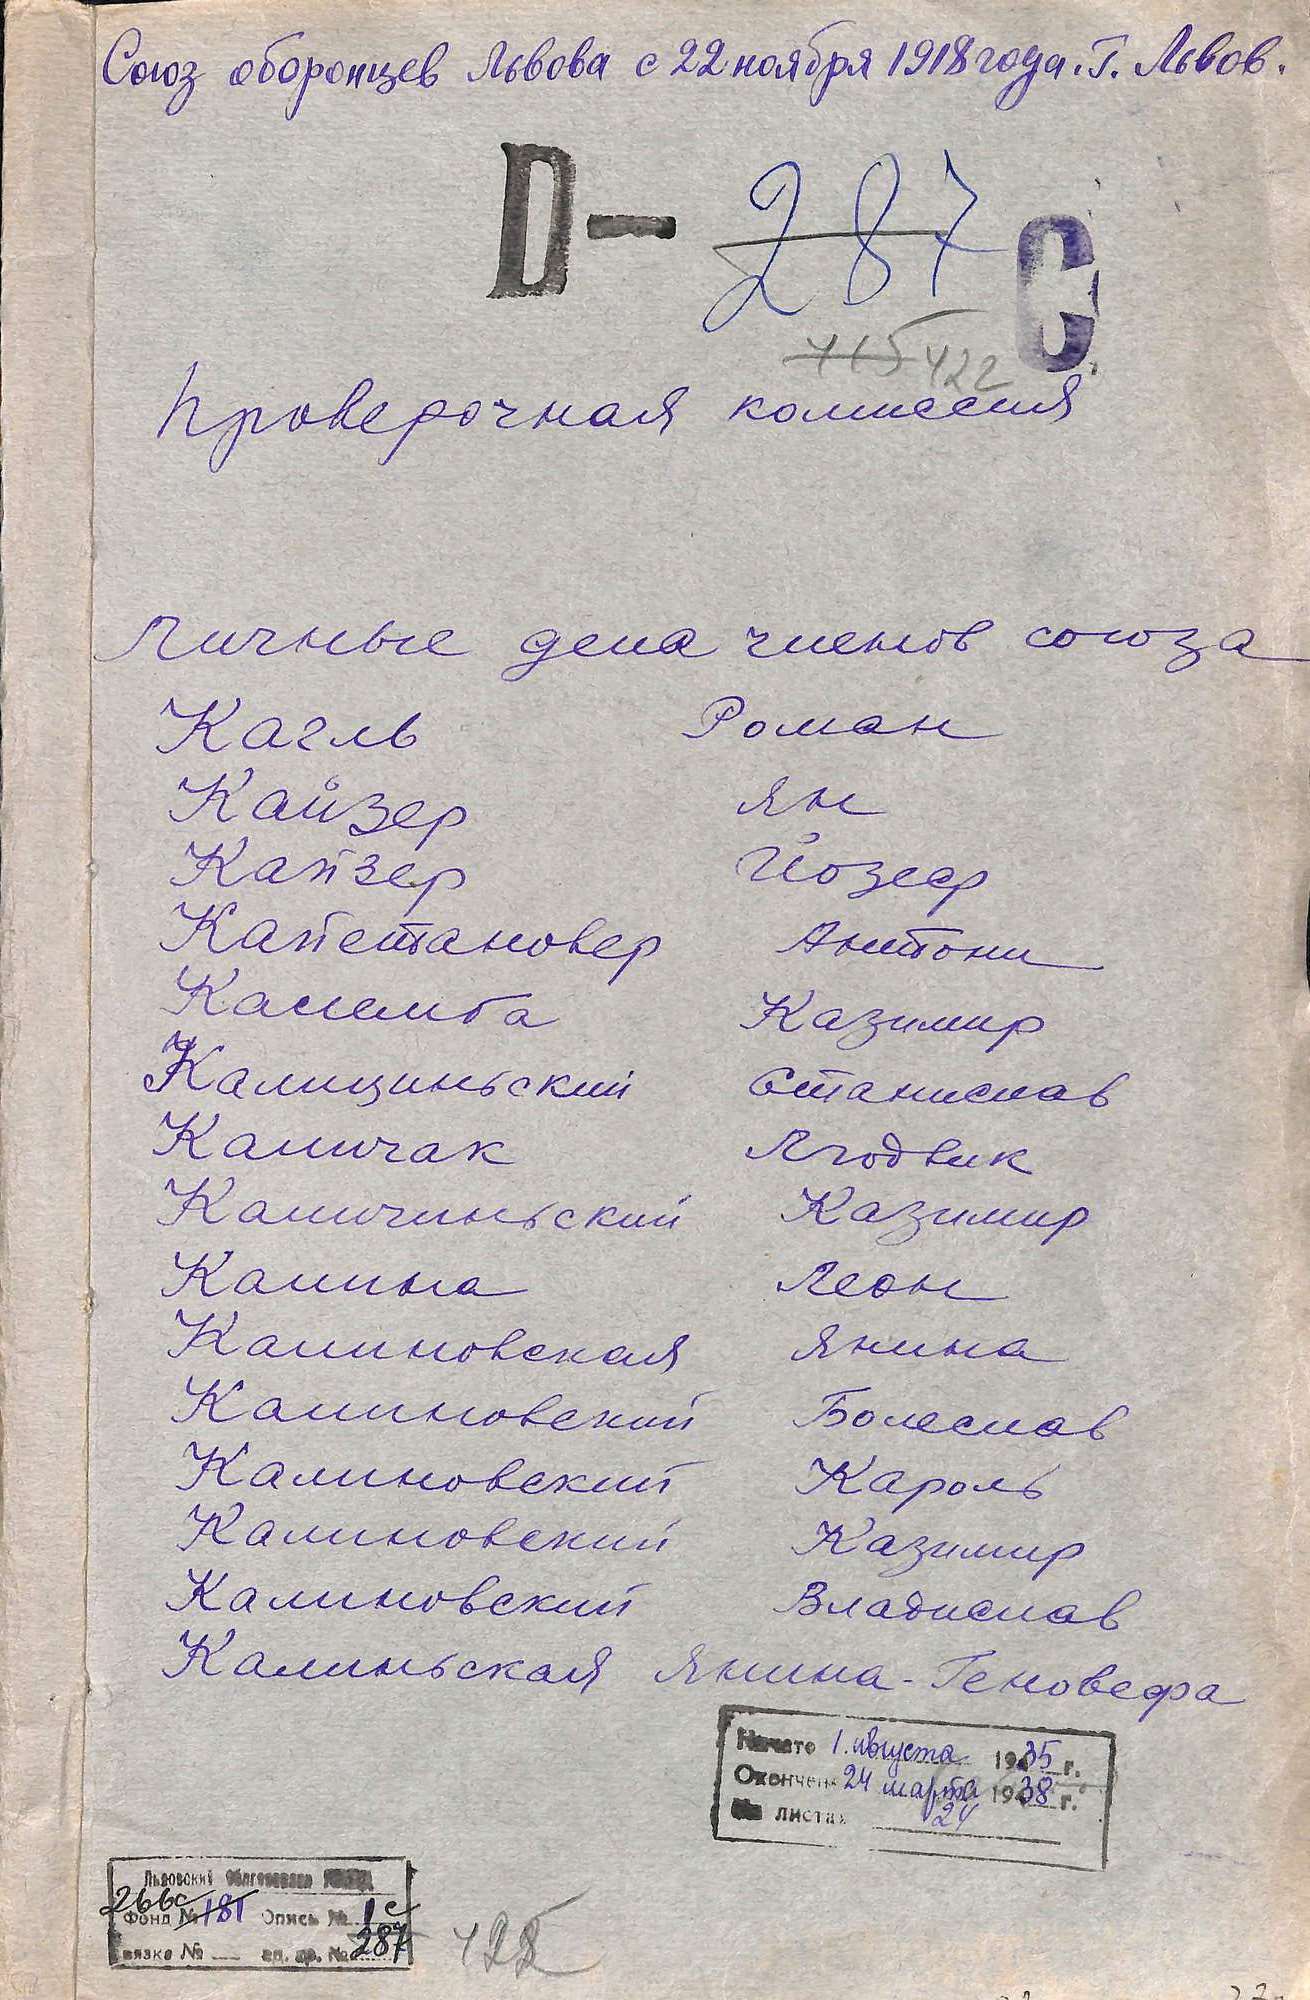 Союз оборонцев Львова с 22 ноября 1918 года. Г. Львов.
D- 287 С
415 422
Проверочная комиссия
Личные дела членов союза
Кагль Роман
Кайзер Ян
Кайзер Йозеф
Кайетановер Антони
Калемба Казимир
Калициньский Станислав
Каличак Людвик
Каличиньский Казимир
Калина Леон
Калиновская Янина
Калиновский Болеслав
Калиновский Кароль
Калиновский Казимир
Калиновский Владислав
Калиньская Янина-Геновефа
Начато 1. августа 1935 г.
Окончен 24 марта 1938 г.
На листах 24
Львовский
266с
Фонд № 181 Опись № 1с
вязка № — ед. хр. № 287
428